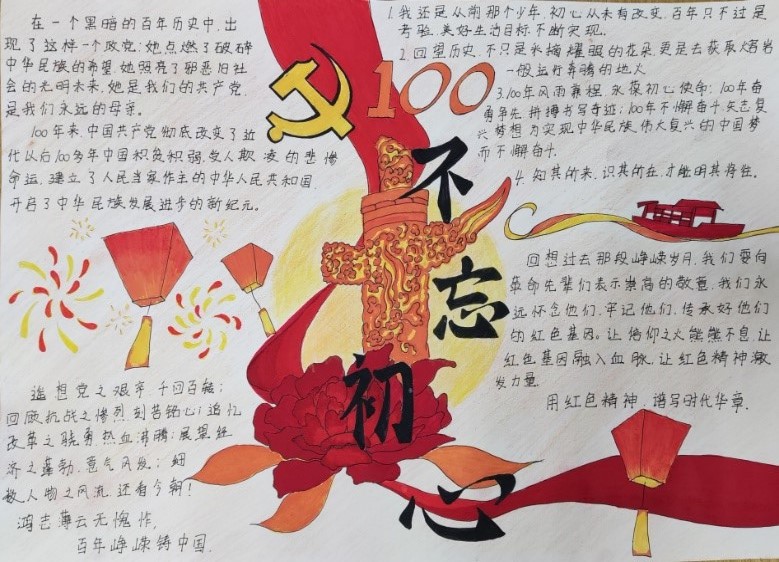 在一个黑暗的百年历史中,出
现了这样一个政党:她点燃了破碎
中华民族的希望,她照亮了邪恶旧社
会的光明未来,她是我们的共产党,
是我们永远的母亲。
100年来,中国共产党彻底改变了近
代以后100多年中国积贫积弱,受人欺凌的悲惨
命运,建立了人民当家作主的中华人民共和国,
开启了中华民族发展进步的新纪元。
追想党之艰辛,千回百转;
回顾抗战之惨烈,刻骨铭心;追忆
改革之骁勇,热血沸腾;展望经
济之蓬勃,意气风发;细
数人物之风流,还看今朝!
鸿志薄云无愧怍,
百年峥嵘铸中国.
100
不
忘
初
心
1.我还是从前那个少年,初心从未有改变,百年只不过是
考验,美好生活目标不断实现.
2.回望历史,不只是采摘耀眼的花朵,更是去获取熔岩
一般运行奔腾的地火
3.100年风雨兼程,永葆初心使命;100年奋
勇争先,拼搏书写奇迹;100年不懈奋斗,矢志复
兴梦想,为实现中华民族伟大复兴的中国梦
而不懈奋斗.
4.知其所来,识其所在,才能明其将往。
回想过去那段峥嵘岁月,我们要向
革命先辈们表示崇高的敬意,我们永
远怀念他们,牢记他们,传承好他们
的红色基因。让信仰之火熊熊不息,让
红色基因融入血脉,让红色精神激
发力量.
用红色精神,谱写时代华章.